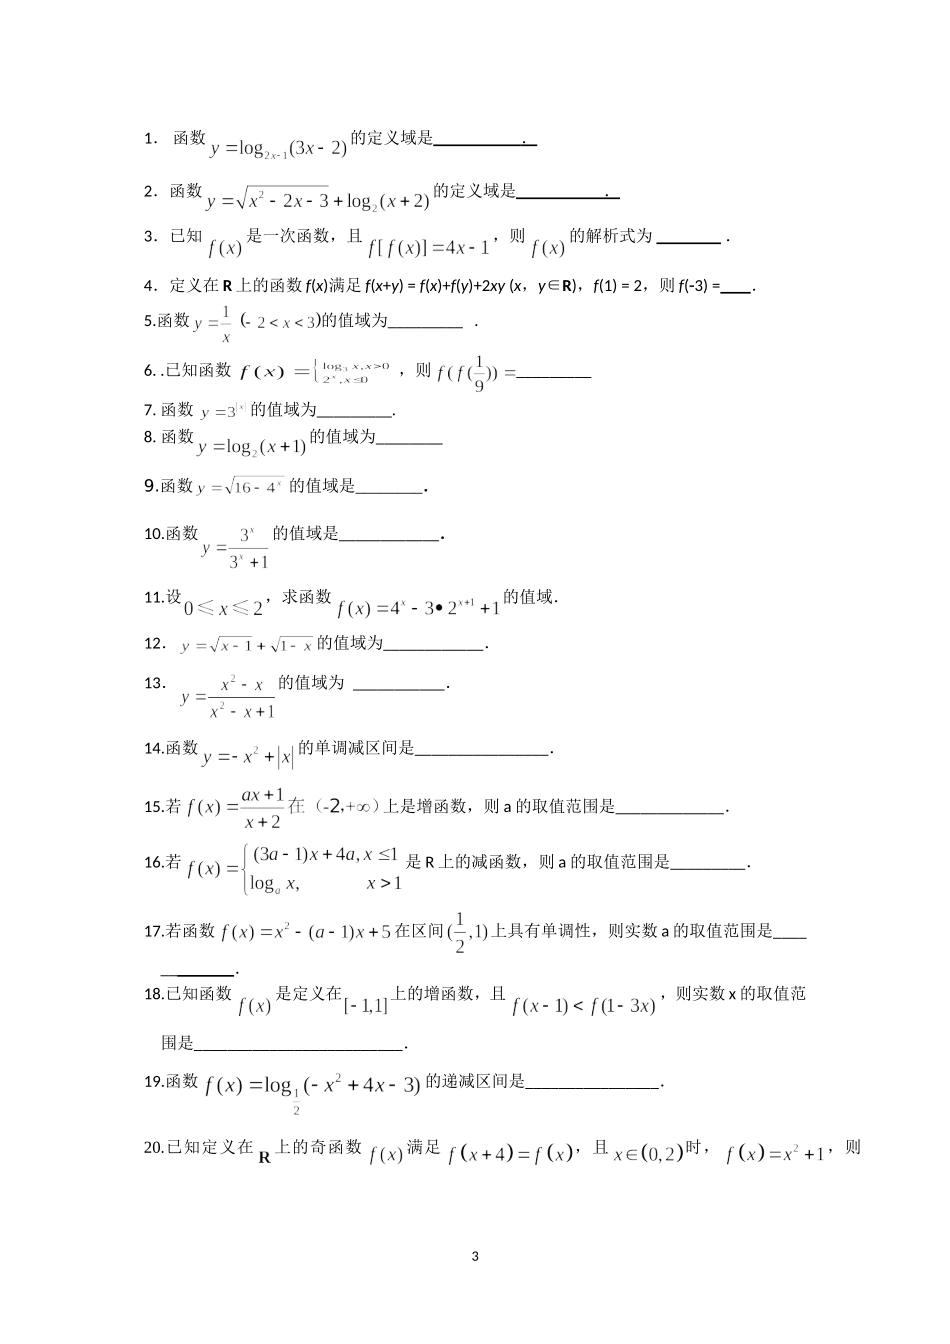 1． 函数 y=log_{2x-1}(3x-2) 的定义域是__________．
2．函数 y=√(x²-2x-3)+log₂(x+2) 的定义域是__________．
3．已知 f(x) 是一次函数，且 f[f(x)]=4x-1，则 f(x) 的解析式为 ________．
4．定义在 R 上的函数 f(x)满足 f(x+y) = f(x)+f(y)+2xy (x，y∈R)，f(1) = 2，则 f(-3) =____．
5.函数 y=1/x (-2<x<3)的值域为_________ ．
6. .已知函数 f(x)={log₃x,x>0 2^x,x≤0 ，则 f(f(1/9))=_________
7. 函数 y=3^{|x|} 的值域为_________.
8. 函数 y=log₂(x+1) 的值域为________
9.函数 y=√(16-4^x) 的值域是________．
10.函数 y=3^x/(3^x+1) 的值域是____________．
11.设 0≤x≤2，求函数 f(x)=4^x-3•2^{x+1}+1 的值域．
12． y=√(x-1)+√(1-x) 的值域为____________．
13． y=(x²-x)/(x²-x+1) 的值域为 ___________．
14.函数 y=-x²+|x| 的单调减区间是________________．
15.若 f(x)=(ax+1)/(x+2) 在（-2，+∞）上是增函数，则 a 的取值范围是_____________．
16.若 f(x)={(3a-1)x+4a,x≤1 log_a x, x>1 是 R 上的减函数，则 a 的取值范围是_________．
17.若函数 f(x)=x²-(a-1)x+5 在区间(1/2,1)上具有单调性，则实数 a 的取值范围是____
_________．
18.已知函数 f(x) 是定义在[-1,1]上的增函数，且 f(x-1)<f(1-3x)，则实数 x 的取值范
围是_________________________．
19.函数 f(x)=log_{1/2}(-x²+4x-3) 的递减区间是________________．
20.已知定义在 R 上的奇函数 f(x) 满足 f(x+4)=f(x)，且 x∈(0,2)时，f(x)=x²+1，则
3